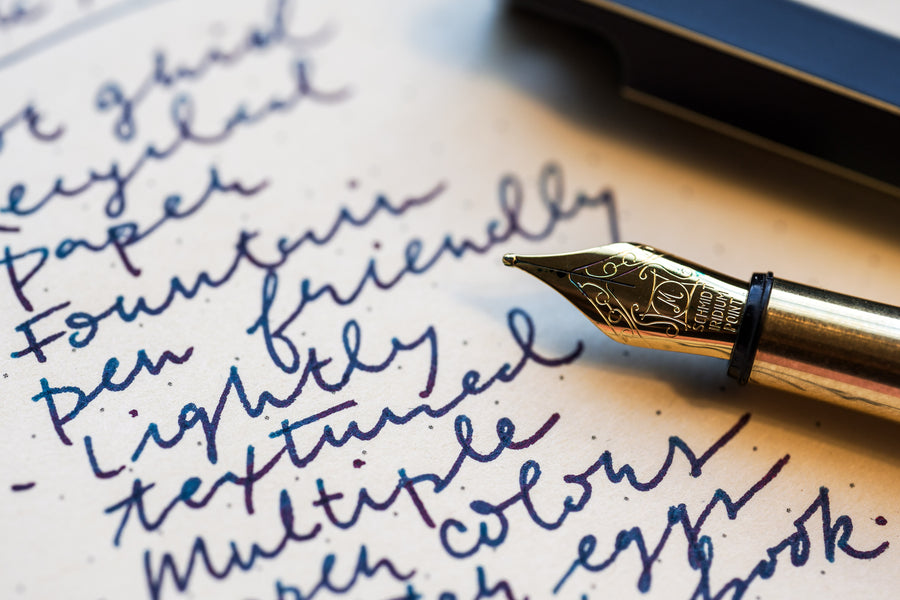 paper
Fountain
pen friendly
Lightly
textured
Multiple
colours
eggs
book.
M
SCHMIDT
IRIDIUM
POINT